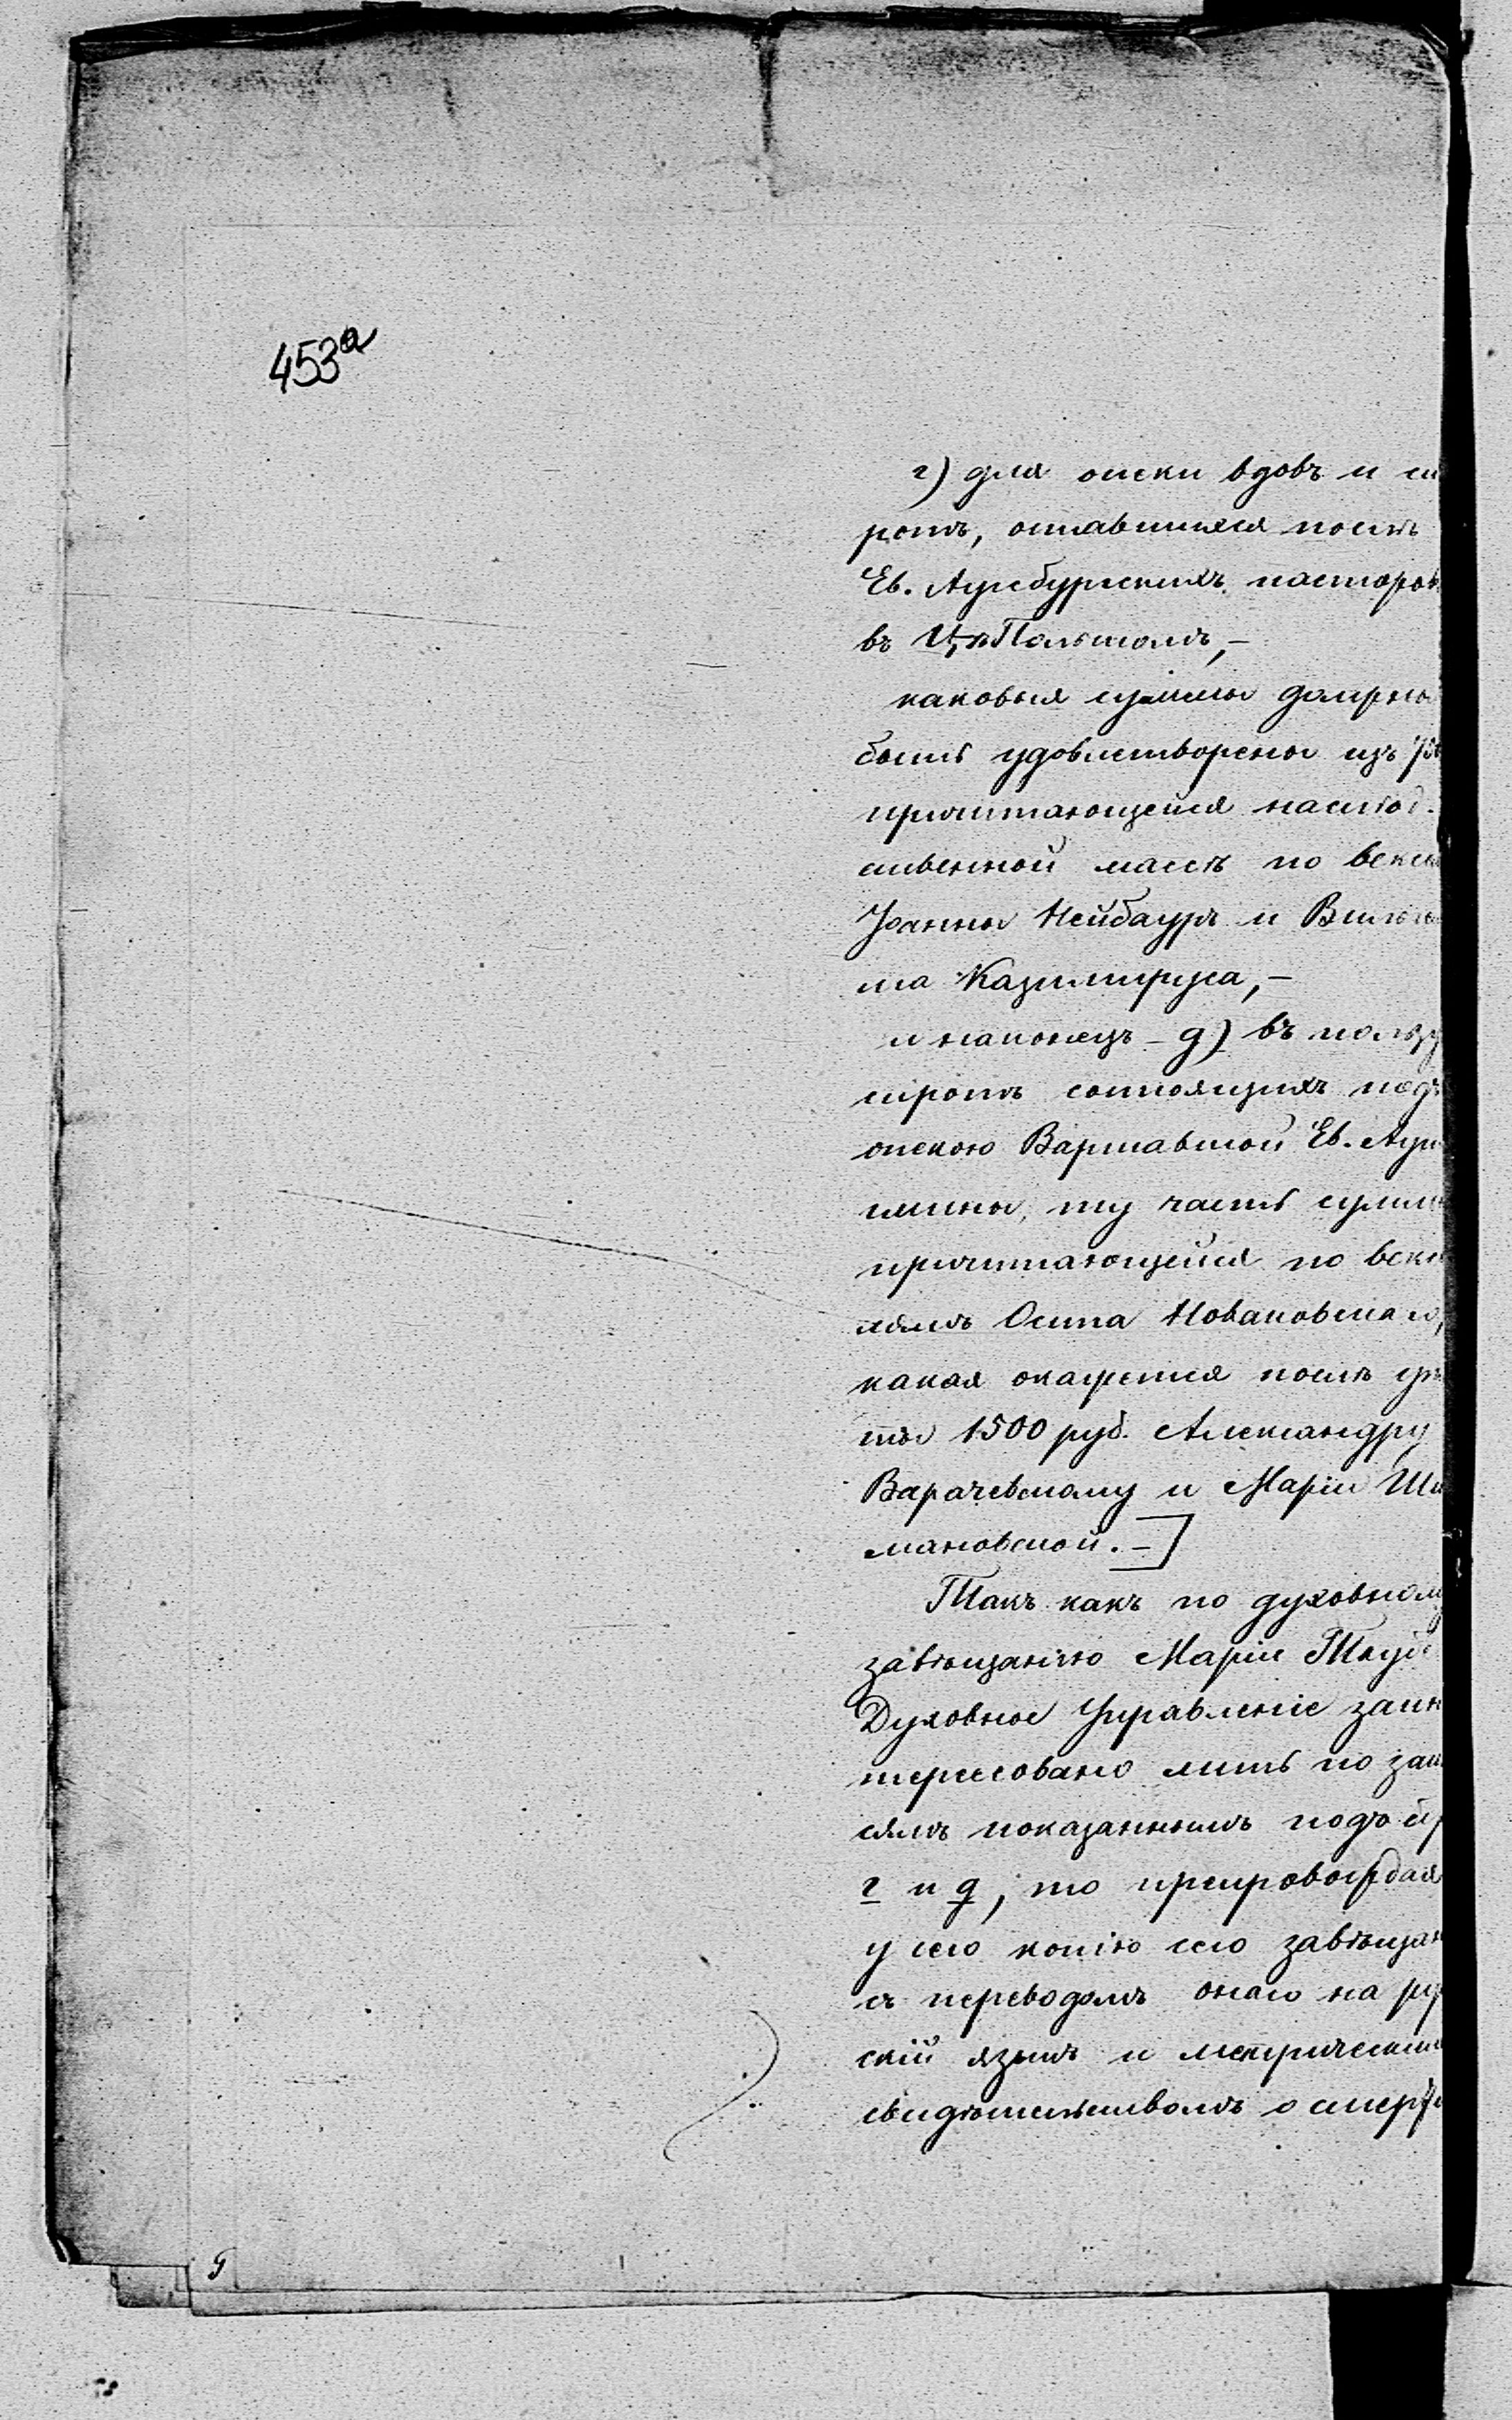 453а
г) для опеки вдовъ и си
ротъ, оставшихся послѣ
Ев. Аугсбургскихъ пасторов
въ Ц. Польскомъ,–
каковыя суммы должны
быть удовлетворены изъ
причитающейся наслѣд.
ственной массѣ по векс
Іоанны Нейбауръ и Вильгель
ма Казимируса,–
и наконецъ – д) въ пользу
сиротъ состоящихъ подъ
опекою Варшавской Ев. Ауг
гмины, ту часть суммы
причитающейся по векс
лямъ Осипа Новаковскаго,
какая окажется послѣ упл
ты 1500 руб. Александру
Варачевскому и Маріи Ши
мановской. –]
Такъ какъ по духовному
завѣщанію Маріи
Духовное Управленіе заин
тересовано лишь по запи
сямъ показаннымъ подъ
г и д, то препровождая
у сего копію сего завѣщан
съ переводомъ онаго на рус
скій языкъ и метрическим
свидѣтельствомъ о смерти